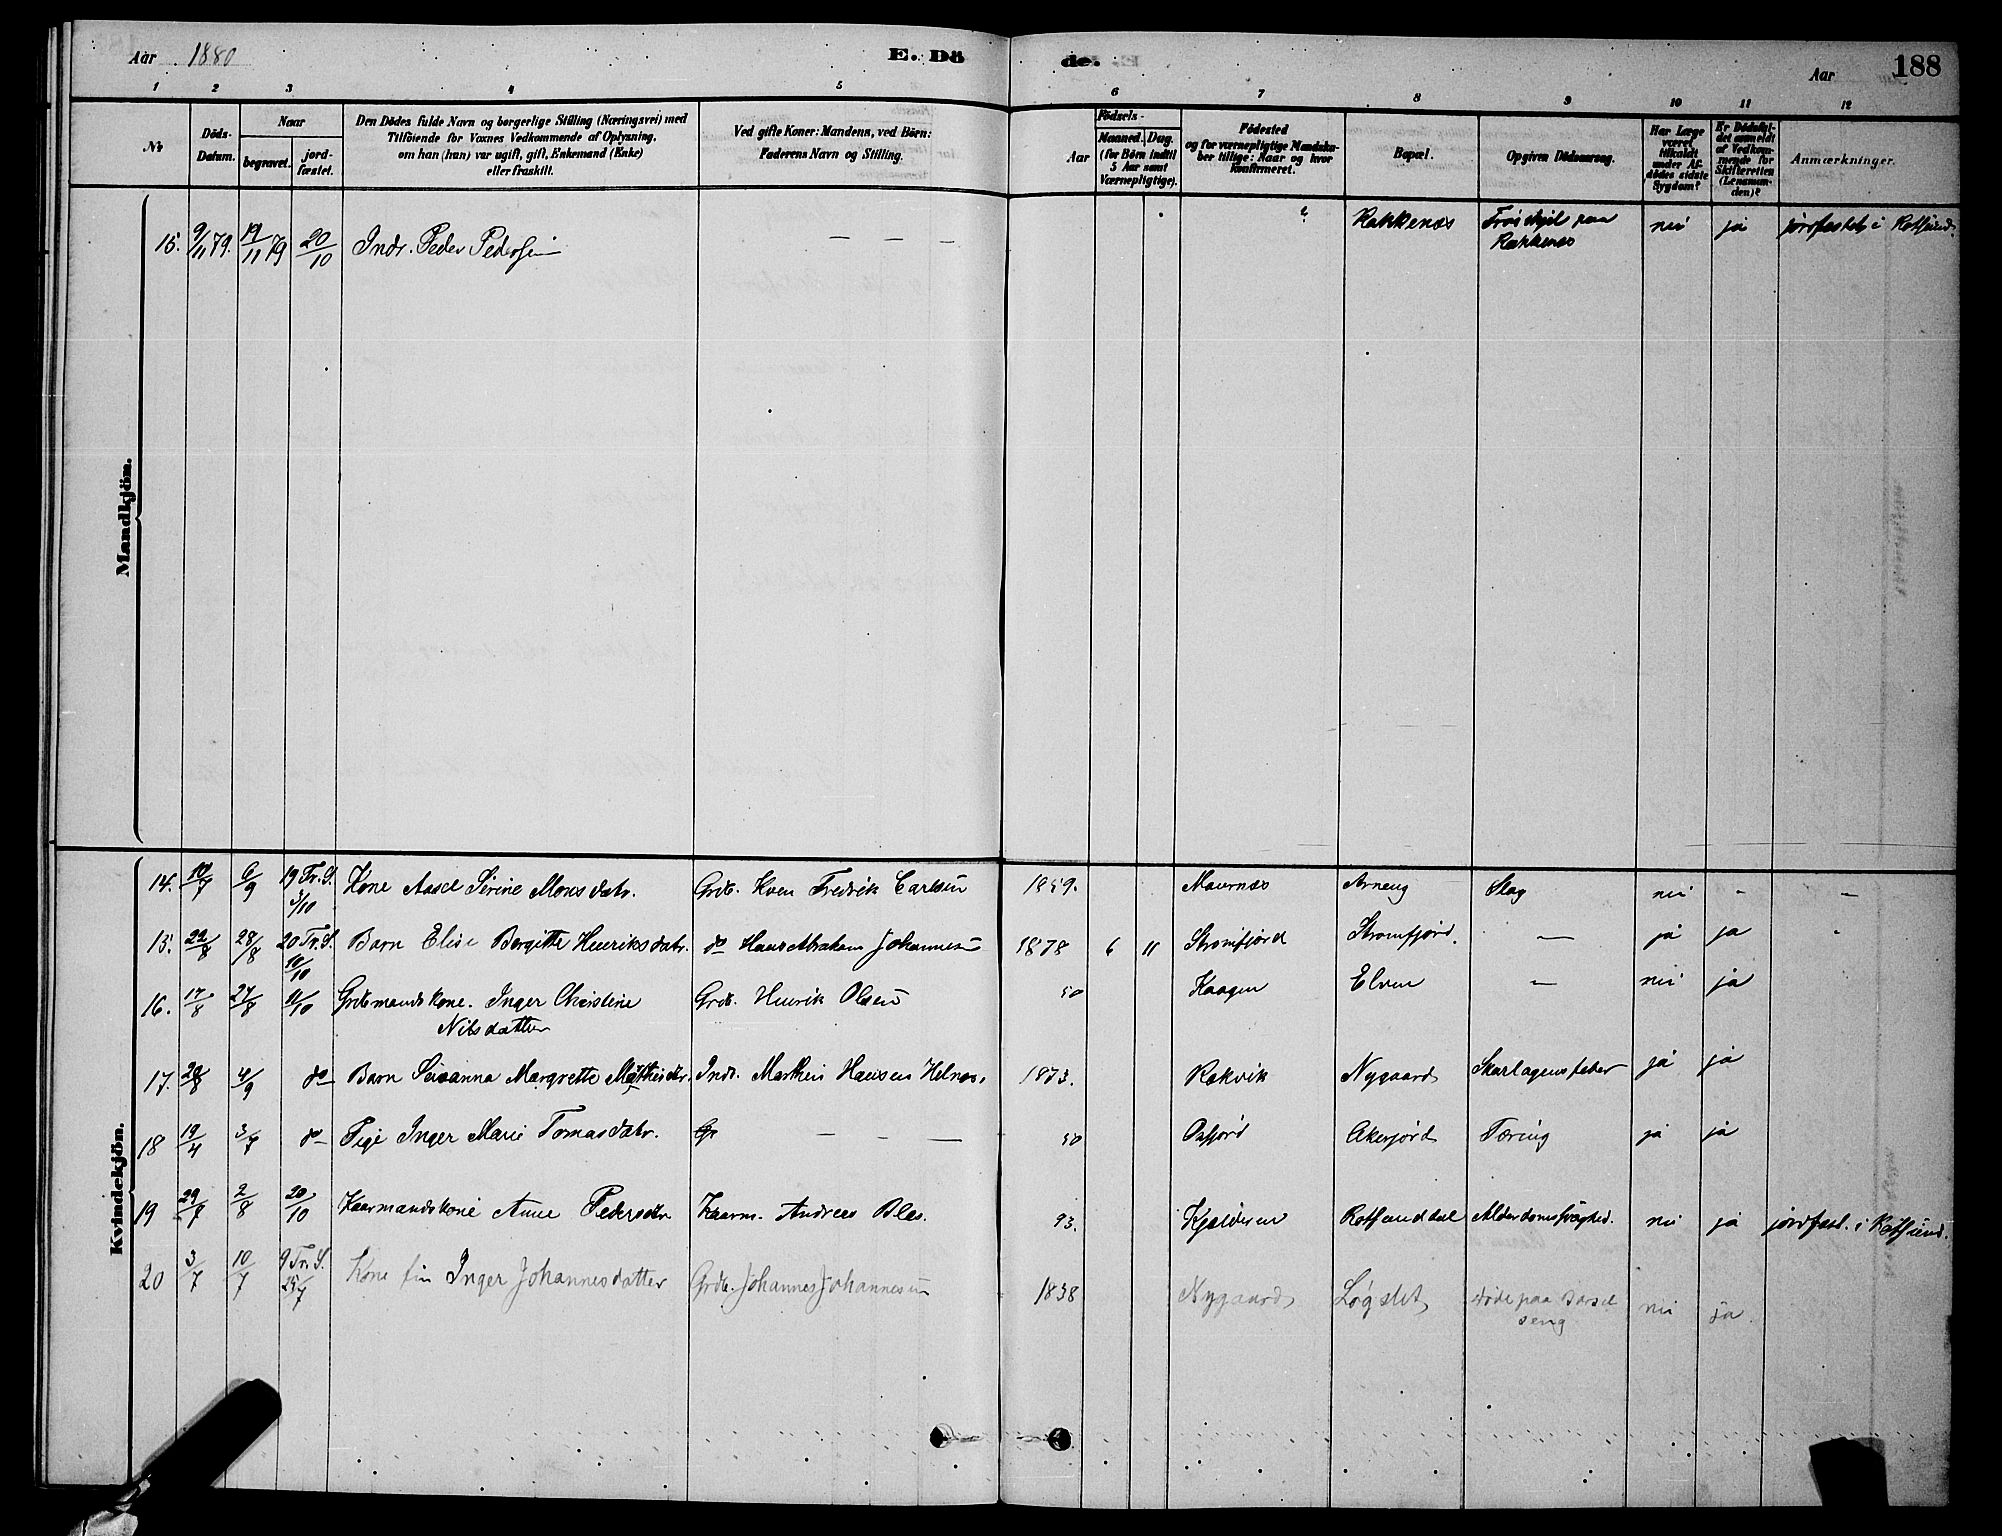 Aar 1880
E. Dö
de.
Aar
188
1 2 3 4 5 6 7 8 9 10 11 12
No
Döds-
Datum.
Naar
begravet.
jord-
fæstet.
Den Dödes fulde Navn og borgerlige Stilling (Næringsvei) med
Tilföiende for Voxnes Vedkommende af Oplysning,
om han (hun) var ugift, gift, Enkemand (Enke)
eller fraskilt.
Ved gifte Koner: Mandens, ved Börn:
Faderens Navn og Stilling.
Födsels-
Aar
Maaned. Dag.
(for Börn indtil
5 Aar samt
Værnepligtige).
Födested
og for værnepligtige Mandska-
ber tillige: Naar og hvor
konfirmeret.
Bopæl.
Opgiven Dödsaarsag.
Har Læge
været
tilkaldt
under Af-
dödes sidste
Sygdom?
Er Dödsfal-
det anmeldt
af Vedkom-
mende for
Skifteretten
(Lensman-
den)?
Anmærkninger.
Mandkjön.
15. 9/11 79. 19/11 79 20/10 Indr. Peder Pedersen — — — ? Rakkenæs nei ja jordfæstet i Rotsund.
Rakkenæs
Kvindekjön.
14. 10/7 6/9 19 Tr. S. 3/10 Kone Aasel Serine Monsdatr. Grdb. Kven Fredrik Carlsen 1859. Maurnæs Arneng Slag nei - —
15. 22/8 28/8 20 Tr. S. 10/10 Barn Elise Bergitte Henriksdatr. do Hans Abraham Johannesen 1878 6 11 Stromfjord Stromfjord. — ja ja -
16. 17/8 27/8 11/10 Grdbmands kone. Inger Christine Grdb. Henrik Olsen 50 Kaagen Elven — nei ja
Nilsdatter
17. 28/8 4/9 do Barn Susanna Margrethe Mathisdtr. Inds. Mathis Hansen Helnes. 1873. Rakvik Nygaard Skarlagensfeber ja ja
18 19/4 3/7 do Pige Inger Marie Tomasdatr. Gr — — — 50 Oxfjord Akerjord Tæring ja ja
19 29/7 2/8 20/10 Kaarmandskone Anne Pedersdtr Kaarm. Andreas Bles. 93. Kjælderen Rotsunddal Alderdomssvaghed. nei ja jordfæst. i Rotsund.
20 3/7 10/7 9 Tr. S. 25/7 Kone fin Inger Johannesdatter Grdb. Johannes Johannesen 1838 Nygaard Løgslet døde paa Barsel nei ja.
seng